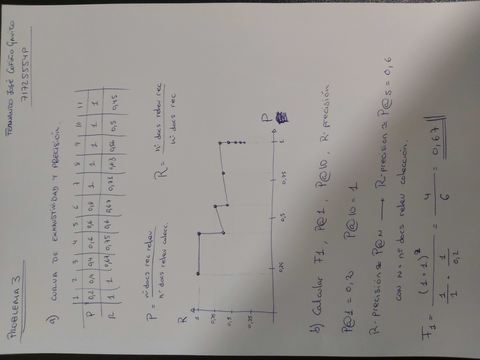 PROBLEMA 3
FERNANDO JOSÉ
71725554P
a) CURVA DE EXHAUSTIVIDAD Y PRECISIÓN.
1 2 3 4 5 6 7 8 9 10 11
P 0,2 0,4 0,4 0,6 0,6 0,8 1 1 1 1
R 1 1 0,67 0,75 0,6 0,67 0,5 0,45
P = nº docs rec relev / nº docs relev colecc.
R = nº docs relev rec / nº docs rec
R
1
0,75
0,5
0,25
0,25
0,5
0,75
1
P
b) Calcular F1, P@1, P@10, R-precisión
P@1 = 0,2, P@10 = 1
R-precisión ≈ P@N → R-precisión ≈ P@5 = 0,6
con N = nº docs relev colección.
F1 = (1+1)² / 1/1 + 1/0,2 = 4/6 = 0,67